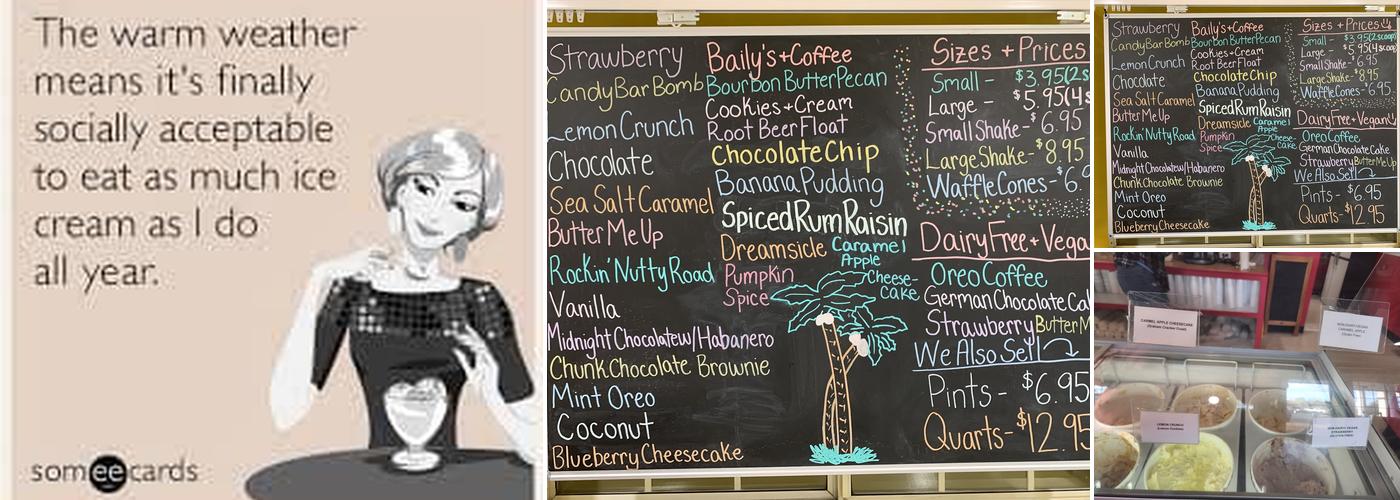 The warm weather
means it's finally
socially acceptable
to eat as much ice
cream as I do
all year.
someecards
Strawberry
CandyBarBomb
Lemon Crunch
Chocolate
Sea Salt Caramel
Butter Me Up
Rockin' Nutty Road
Vanilla
Midnight Chocolate w/Habanero
Chunk Chocolate Brownie
Mint Oreo
Coconut
Blueberry Cheesecake
Baily's + Coffee
Bourbon Butter Pecan
Cookies + Cream
Root Beer Float
Chocolate Chip
Banana Pudding
Spiced Rum Raisin
Dreamsicle
Pumpkin
Spice
Caramel
Apple
Cheese-
cake
Sizes + Prices
Small - $3.95(2s
Large - $5.95(4s
Small Shake - $6.95
Large Shake - $8.95
Waffle Cones - $6.9
Dairy Free + Vega
Oreo Coffee
German Chocolate Cak
Strawberry Butter M
We Also Sell
Pints - $6.95
Quarts - $12.95
Strawberry
CandyBarBomb
Lemon Crunch
Chocolate
Sea Salt Caramel
Butter Me Up
Rockin' Nutty Road
Vanilla
Midnight Chocolate w/Habanero
Chunk Chocolate Brownie
Mint Oreo
Coconut
Blueberry Cheesecake
Baily's + Coffee
Bourbon Butter Pecan
Cookies + Cream
Root Beer Float
Chocolate Chip
Banana Pudding
Spiced Rum Raisin
Dreamsicle
Pumpkin
Spice
Caramel
Apple
Cheese-
cake
Sizes + Prices
Small - $3.95(2scoop
Large - $5.95(4scoop
Small Shake - $6.95
Large Shake - $8.95
Waffle Cones - $6.95
Dairy Free + Vegan
Oreo Coffee
German Chocolate Cake
Strawberry Butter Me Up
We Also Sell
Pints - $6.95
Quarts - $12.95
CARMEL APPLE CHEESECAKE
(Graham Cracker Crust)
NON-DAIRY/VEGAN
CARAMEL APPLE
LEMON CRUNCH
NON-DAIRY/VEGAN
STRAWBERRY